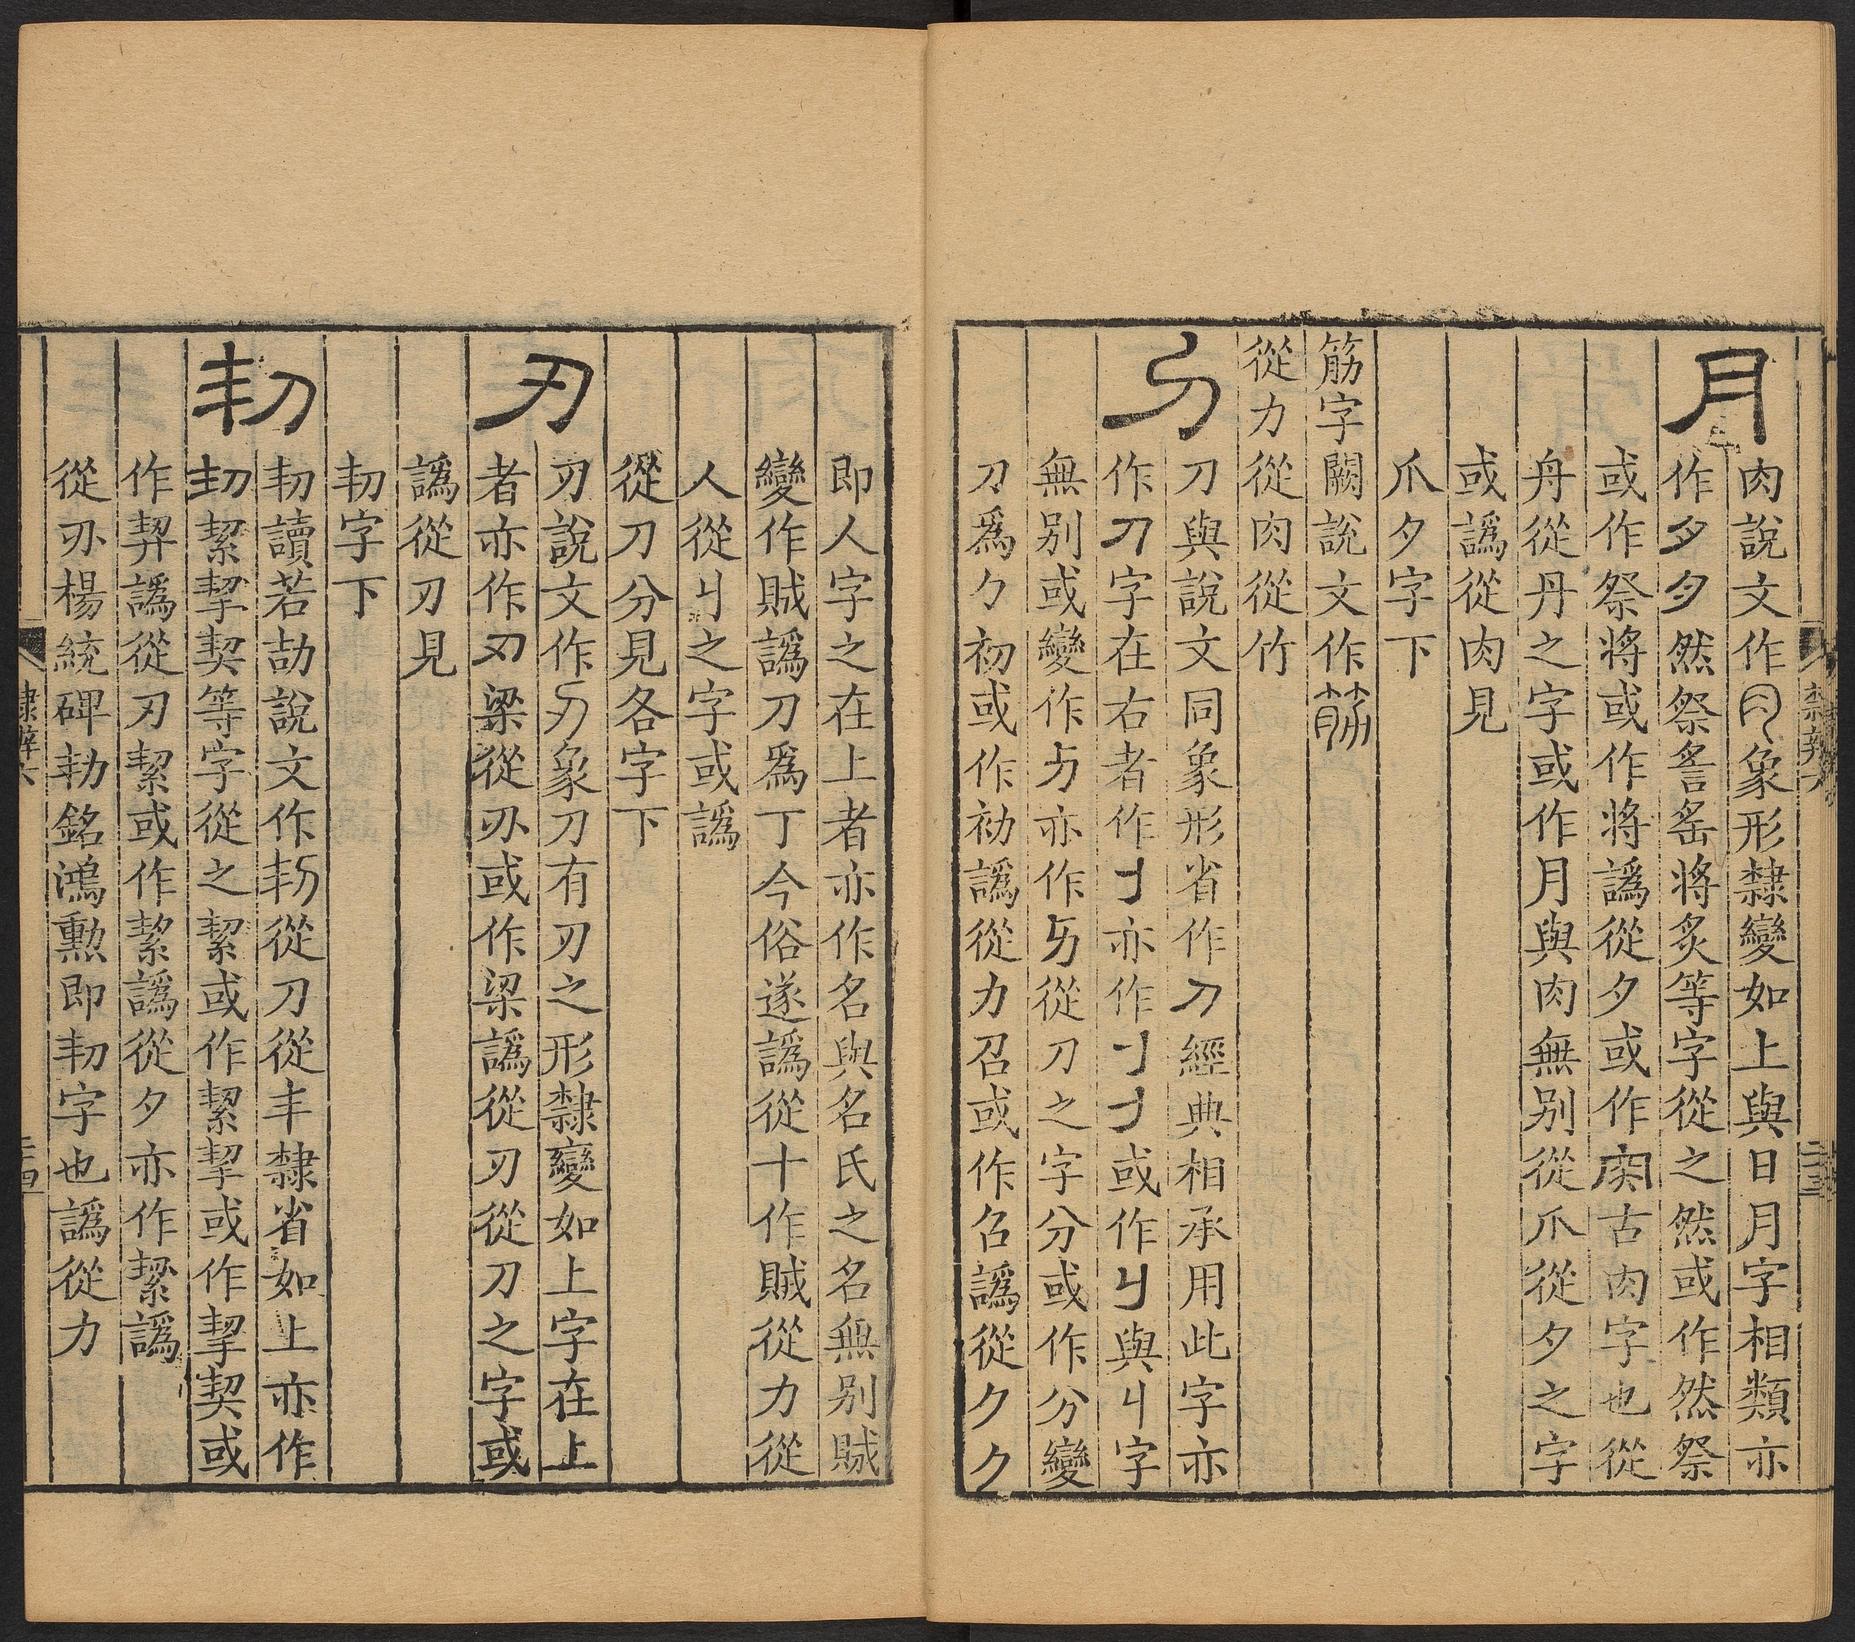 月
肉說文作象形隸變如上與日月字相類亦
作然祭䚻䍃將炙等字從之然或作然祭
或作祭將或作將譌從夕或作古肉字也從
舟從丹之字或作月與肉無别從爪從夕之字
或譌從肉見
爪夕字下
筋字闕說文作筋
從力從肉從竹
刀
刀與說文同象形省作刀經典相承用此字亦
作刀字在右者作亦作或作與刂字
無别或變作亦作從刀之字分或作分變
刀爲ク初或作初譌從力召或作召譌從夕ク
即人字之在上者亦作名與名氏之名無别賊
變作賊譌刀爲丁今俗遂譌從十作賊從力從
人從刂之字或譌
從刀分見各字下
刃
刃說文作象刀有刃之形隸變如上字在上
者亦作刃梁從刅或作梁譌從刃從刀之字或
譌從刃見
㓞字下
㓞
㓞讀若劼說文作㓞從刀從丯隸省如上亦作
㓞絜挈契等字從之絜或作絜挈或作挈契或
作契譌從刃絜或作絜譌從夕亦作絜譌
從刅楊統碑勑銘鴻勲即㓞字也譌從力
隸辨六
二四
隸辨六
二三